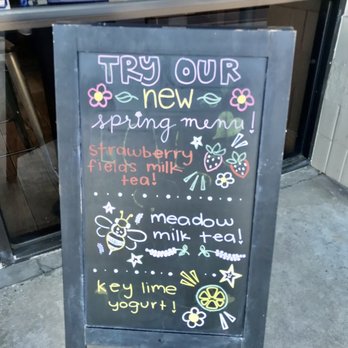 TRY OUR
new
spring menu!
strawberry
fields milk
tea!
meadow
milk tea!
key lime
yogurt!